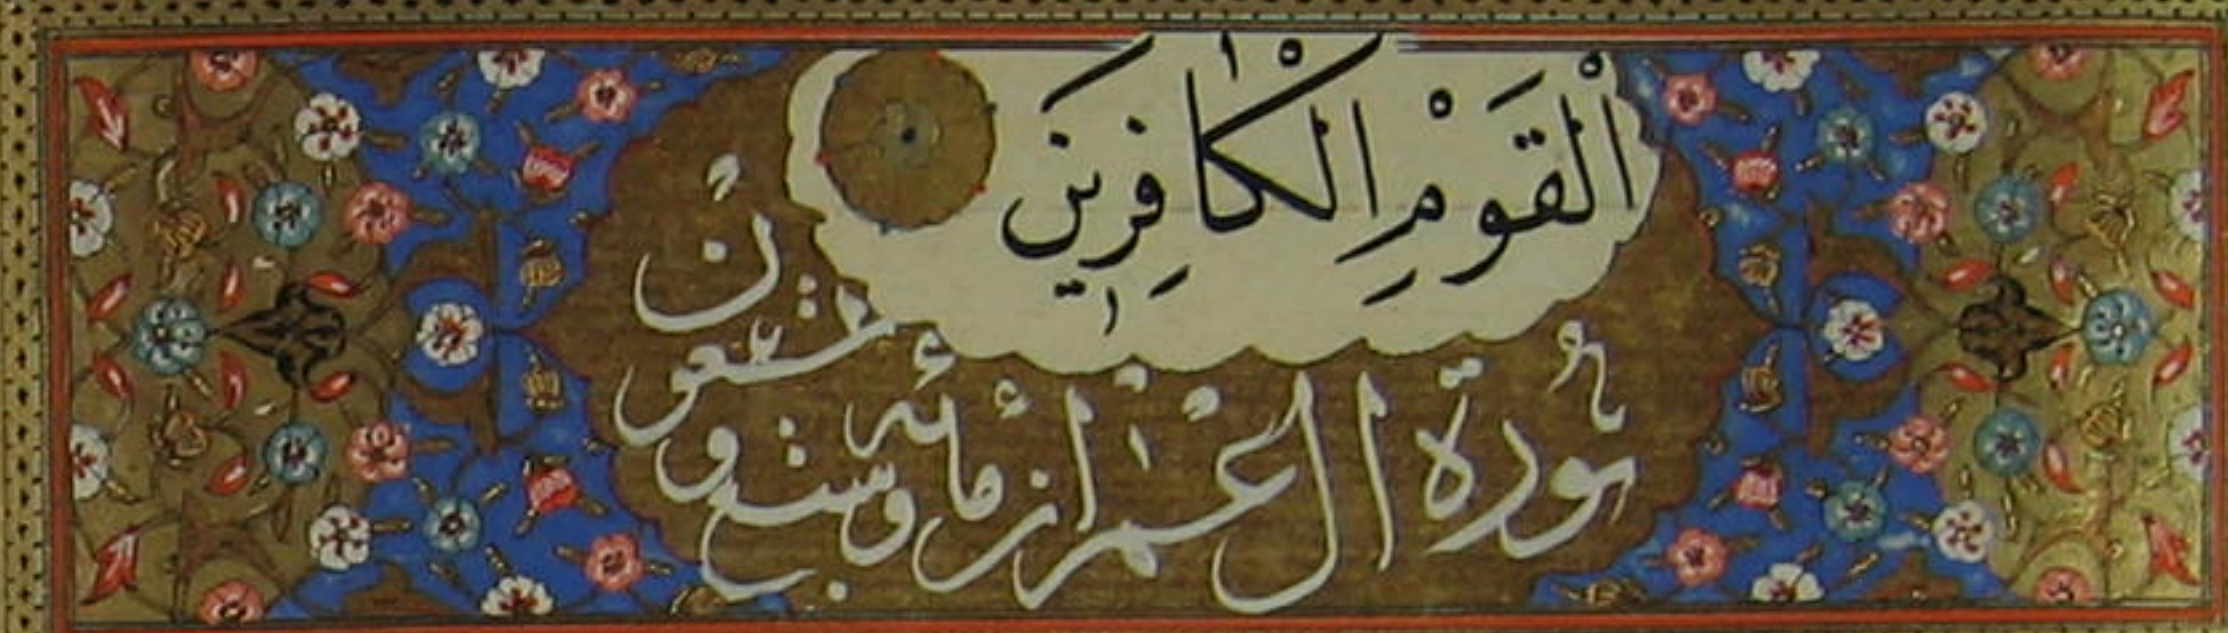 الْقَوْمِ الْكَافِرِينَ
سورة ال عمران مائه وتسعون